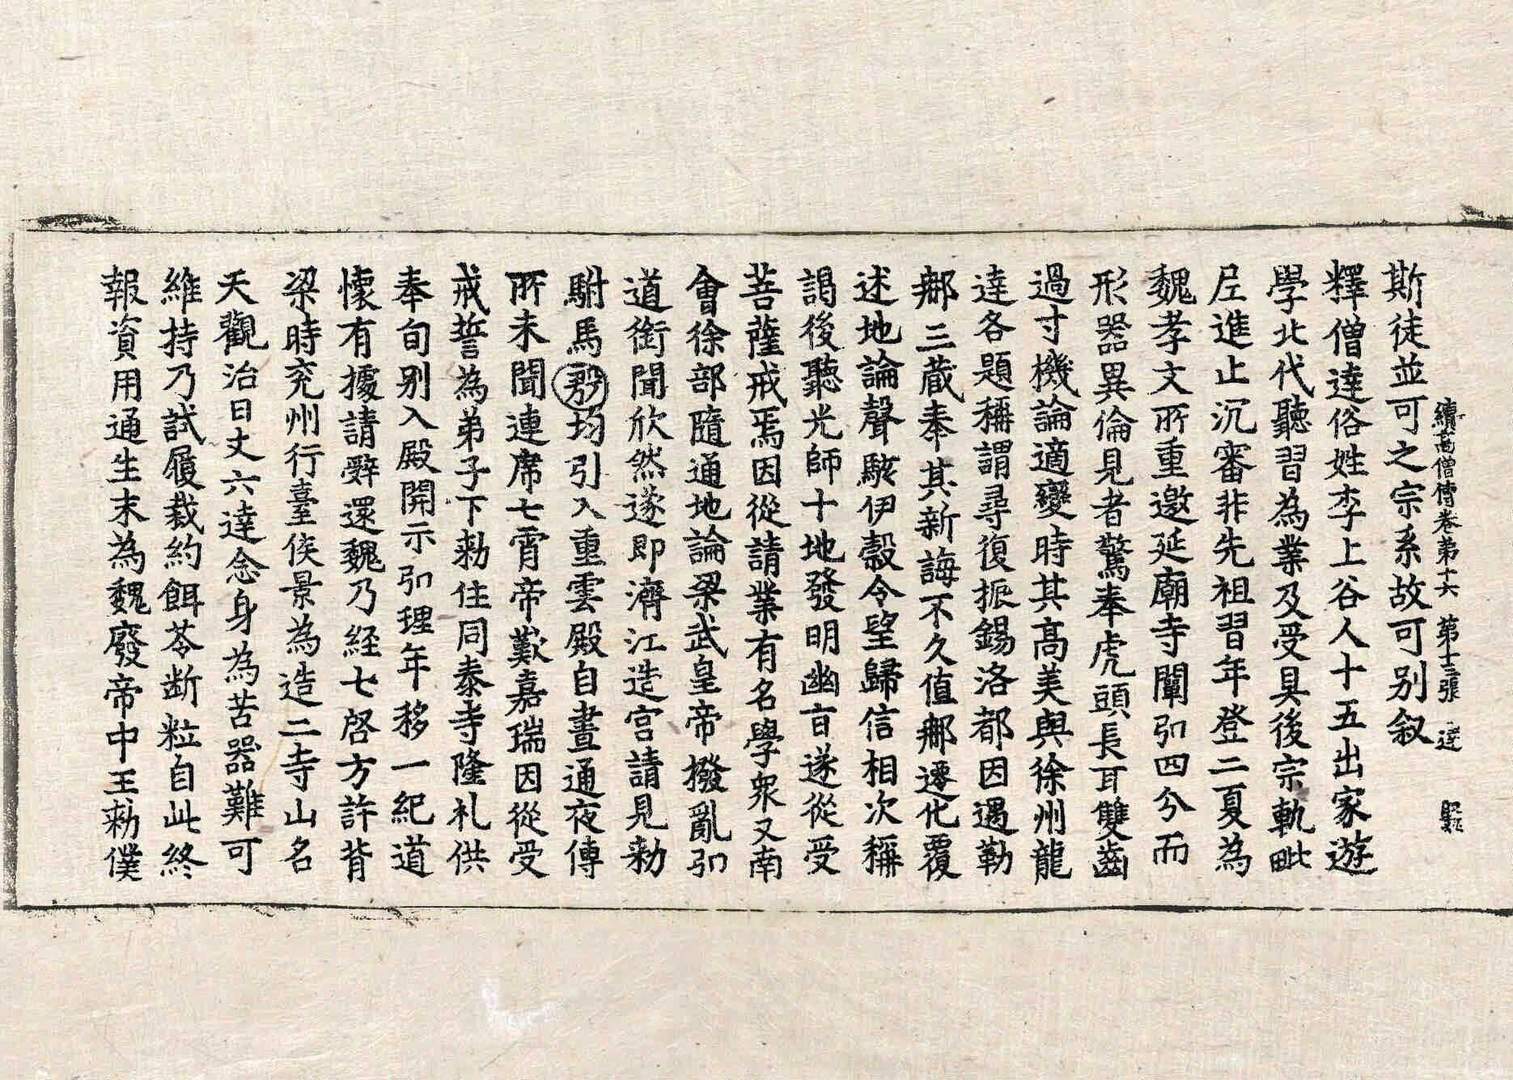 續高僧傳卷第十六 第十三張 達
斯徒並可之宗系故可別叙
釋僧達俗姓李上谷人十五出家遊
學北代聽習為業及受具後宗軌毗
尼進止沉審非先祖習年登二夏為
魏孝文所重邀延廟寺闡弘四分而
形器異倫見者驚奉虎頭長耳雙齒
過寸機論適變時其高美與徐州龍
達各題稱謂尋復振錫洛都因遇勒
那三藏奉其新誨不久值那遷化覆
述地論聲駭伊穀令望歸信相次稱
謁後聽光師十地發明幽旨遂從受
菩薩戒焉因從請業有名學衆又南
會徐部隨通地論梁武皇帝撥亂弘
道銜聞欣然遂即濟江造宮請見勑
駙馬殷均引入重雲殿自晝通夜傳
所未聞連席七霄帝歎嘉瑞因從受
戒誓為弟子下勑住同泰寺隆礼供
奉旬別入殿開示弘理年移一紀道
懷有據請辭還魏乃経七啓方許背
梁時兖州行臺侯景為造二寺山名
天觀治曰丈六達念身為苦器難可
維持乃試履裁約餌苓断粒自此終
報資用通生末為魏廢帝中王勑僕